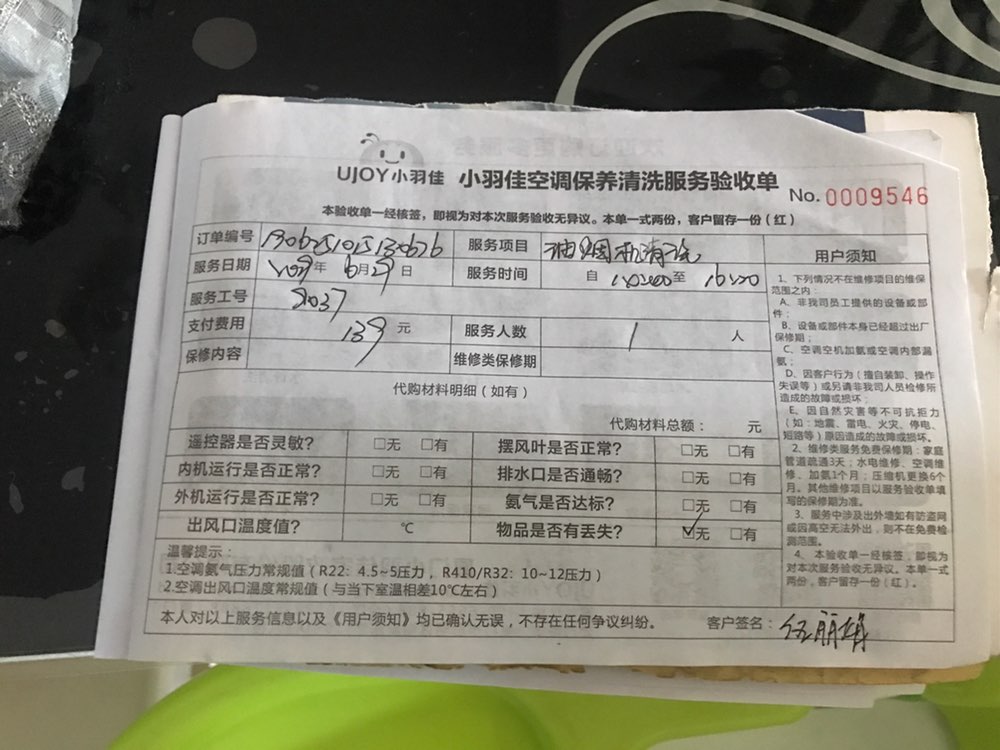 UJOY小羽佳 小羽佳空调保养清洗服务验收单 No. 0009546
本验收单一经核签，即视为对本次服务验收无异议。本单一式两份，客户留存一份（红）
订单编号 服务项目 油烟机清洗
服务日期 2019年 6月29日 服务时间 自 至
服务工号 2037
支付费用 139 元 服务人数 1 人
保修内容 维修类保修期
代购材料明细（如有）
代购材料总额： 元
遥控器是否灵敏？ □无 □有 摆风叶是否正常？ □无 □有
内机运行是否正常？ □无 □有 排水口是否通畅？ □无 □有
外机运行是否正常？ □无 □有 氨气是否达标？ □无 □有
出风口温度值？ ℃ 物品是否有丢失？ ☑无 □有
温馨提示：
1.空调氨气压力常规值（R22：4.5~5压力，R410/R32：10~12压力）
2.空调出风口温度常规值（与当下室温相差10℃左右）
本人对以上服务信息以及《用户须知》均已确认无误，不存在任何争议纠纷。 客户签名：
用户须知
1、下列情况不在维修项目的维保
范围之内：
A、非我司员工提供的设备或部
件；
B、设备或部件本身已经超过出厂
保修期；
C、空调空机加氨或空调内部漏
氨；
D、因客户行为（擅自装卸、操作
失误等）或另请非我司人员检修所
造成的故障或损坏；
E、因自然灾害等不可抗拒力
（如：地震、雷电、火灾、停电、
短路等）原因造成的故障或损坏。
2、维修类服务免费保修期：家庭
管道疏通3天；水电维修、空调维
修、加氨1个月；压缩机更换6个
月。其他维修项目以服务验收单填
写的保修期为准。
3、服务中涉及出外墙如有防盗网
或因高空无法外出，则不在免费检
测范围。
4、本验收单一经核签，即视为
对本次服务验收无异议。本单一式
两份，客户留存一份（红）。